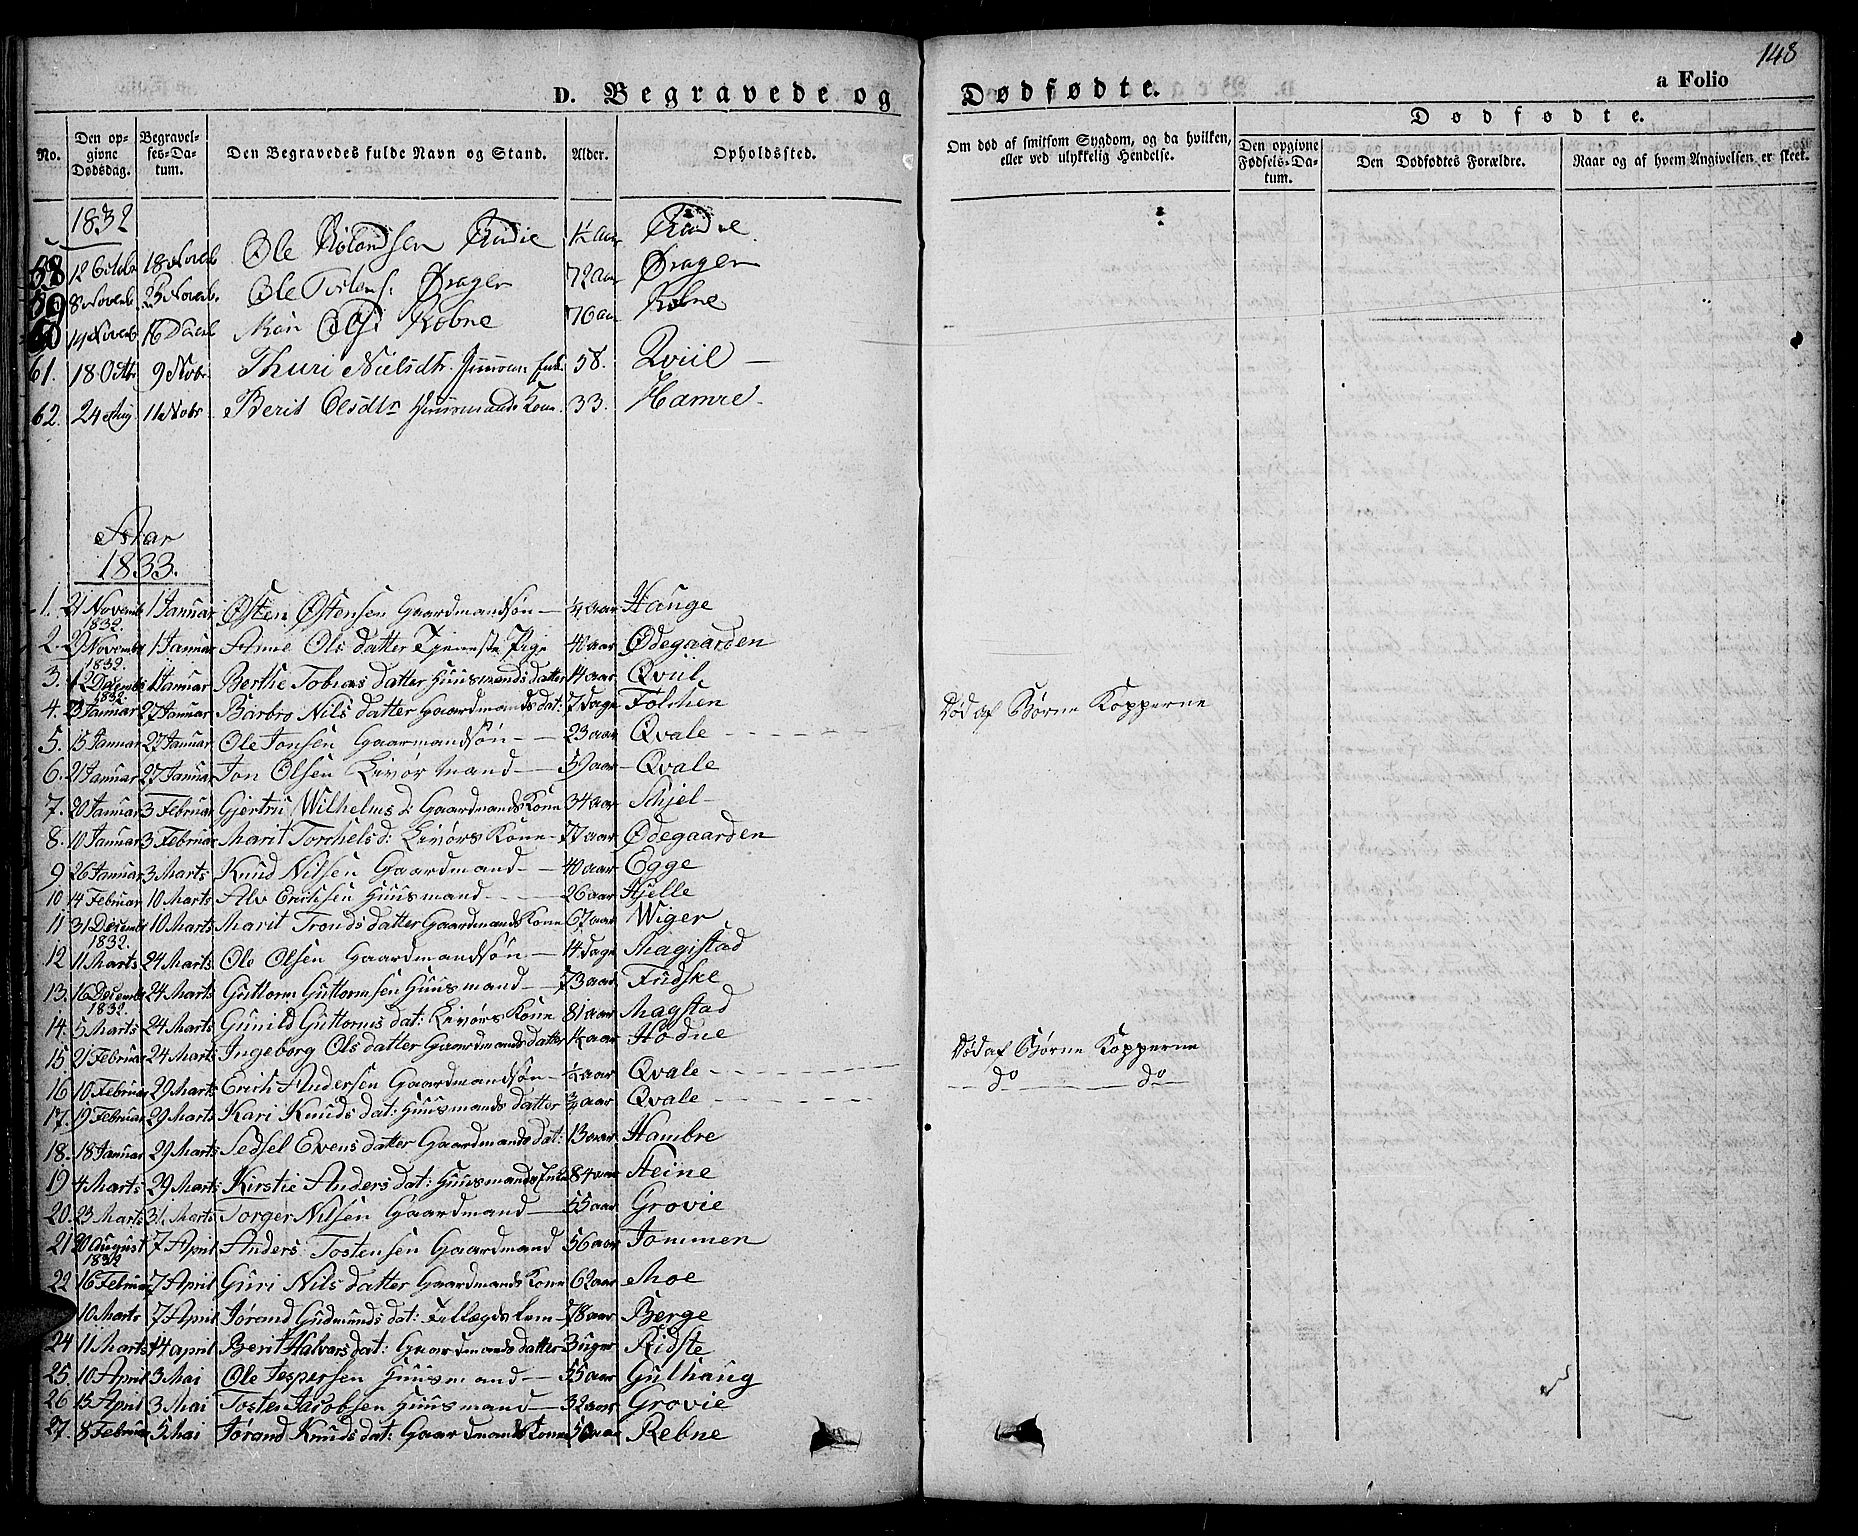 148
D. Begravede og Dødfødte. a Folio
No. Den opgivne Dødsdag. Begravelses-Datum. Den Begravedes fulde Navn og Stand. Alder. Opholdssted. Om død af smitsom Sygdom, og da hvilken, eller ved ulykkelig Hendelse. Dødfødte. Den opgivne Fødsels-Datum. Den Dødfødtes Forældre. Naar og af hvem Angivelsen er skeet.
1832
58 12 Octobr 18 Noveb Ole
59 8 Novenb 25 Novenb. Ole Drager 72 aar Drager
60 14 Novenb 16 Olsd Robne 76 aar Robne
61. 18 Octbr 9 Novbr Thuri Nielsdtr. 58. Qviil —
62. 24 Aug 11 Novbr Berit Olsdtr Huusmands Kone 33. Hamre -
Aar
1833.
1. 21 Novemb 1832. 1 Januar Østen Østensen Gaardmandsøn — ¼ aar Hauge
2. 29 Novemb 1832. 1 Januar Anne Ols datter Tjeneste Pige 40 aar Ødegaarden
3. 12 Decemb 1832. 1 Januar Berthe Tobias datter Huusmands datter 14 aar Qviil
4. 23 Januar 27 Januar Barbro Nils datter Gaardmands dat: 7 dage Folchen
5. 15 Januar 27 Januar Ole Jonsen Gaarmandsøn — 23 aar Qvale Død af Børne Kopperne
6. 21 Januar 27 Januar Jon Olsen Livør Mand — 59 aar Qvale
7. 20 Januar 3 Februar Gjertru Wilhelms d: Gaardmands Kone 34 aar Schjel
8. 10 Januar 3 Februar Marit Torchels d: Livørs Kone - 77 aar Ødegaarden
9 26 Januar 3 Marts Knud Nilsen Gaardmand — 40 aar Egge
10 14 Februar 10 Marts Alv Erichsen Huusmand — 26 aar Hjelle
11 31 Decemb 1832. 10 Marts Marit Tronds datter Gaardmands Kone 67 aar Wiger
12 11 Marts 24 Marts Ole Olsen Gaardmandsøn — 14 dage Magistad
13. 16 Decemb 1832. 24 Marts Guttorm Guttormsen Huusmand — 73 aar Fudske
14. 5 Marts 24 Marts Gunild Guttorms dat: Livørs Kone 81 aar Magstad
15. 21 Februar 24 Marts Ingeborg Ols datter Gaardmands datter aar Hodne
16 10 Februar 29 Marts Erich Andersen Gaardmandsøn — ½ aar Qvale Død af Børne Kopperne
17. 19 Februar 29 Marts Kari Knuds dat: Huusmands datter ¾ aar Qvale — do — do —
18. 18 Januar 29 Marts Sedsel Evens datter Gaardmands dat: 13 aar Hambre
19 4 Marts 29 Marts Kirstie Anders dat: Huusmands Enke 84 aar Steine
20. 23 Marts 31 Marts Torger Nilsen Gaardmand — 55 aar Grovie
21 20 August 1832 7 April Anders Tostensen Gaardmand 56 aar Tommen
22 16 Februar 7 April Guri Nils datter Gaardmands Kone 62 aar Moe
10 Marts 7 April Jørand Gudmunds dat: Fellægds Lem — 78 aar Berge
24 11 Marts 14 april Berit Halvors dat: Gaardmands datter 3 uger Ridste
25. 10 April 3 Mai Ole Jespersen Huusmand — 55 aar Gulhaug
26 15 April 3 Mai Tosten Jacobsen Huusmand — 32 aar Grovie
27. 8 Februar 5 Mai Jørand Knuds dat: Gaardmands Kone 50 aar Rebne